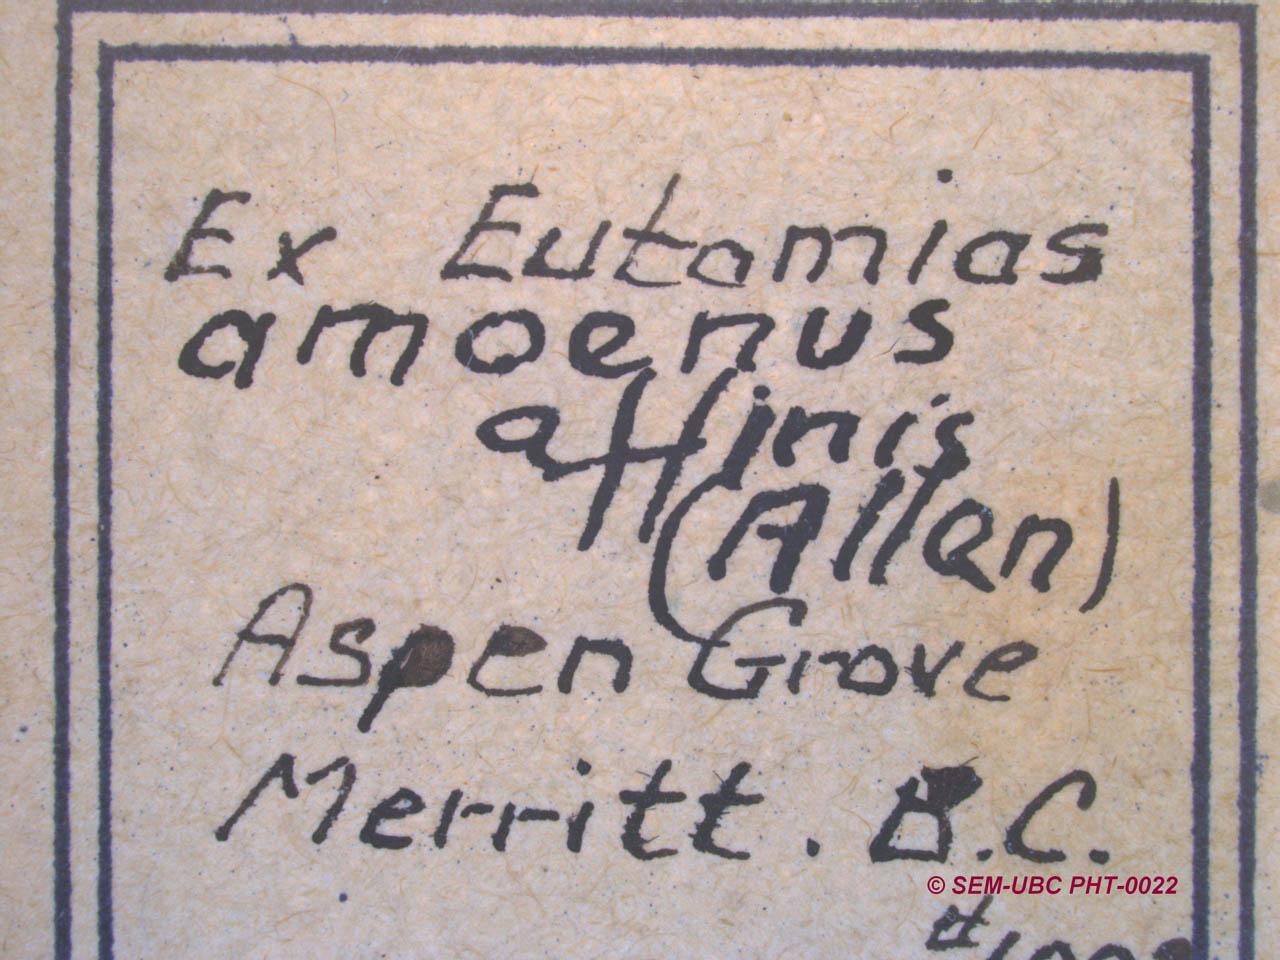 Ex Eutamias
amoenus
affinis
(Allen)
Aspen Grove
Merritt. B.C.
© SEM-UBC PHT-0022